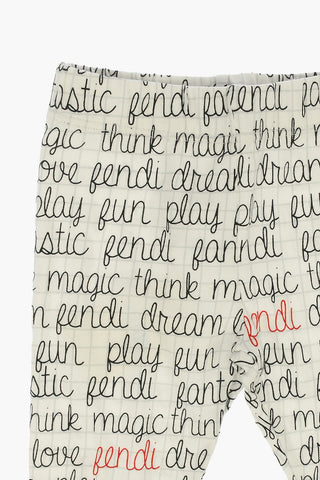 astic fendi fa endi fa
agic think magic think m
love fendi dream dream
play fun play play fu
stic fendi fan ndi
magic think m magic think
n fendi dream fendi
fun play fun fun
stic fendi fanta
hink magic thin
love fendi dre